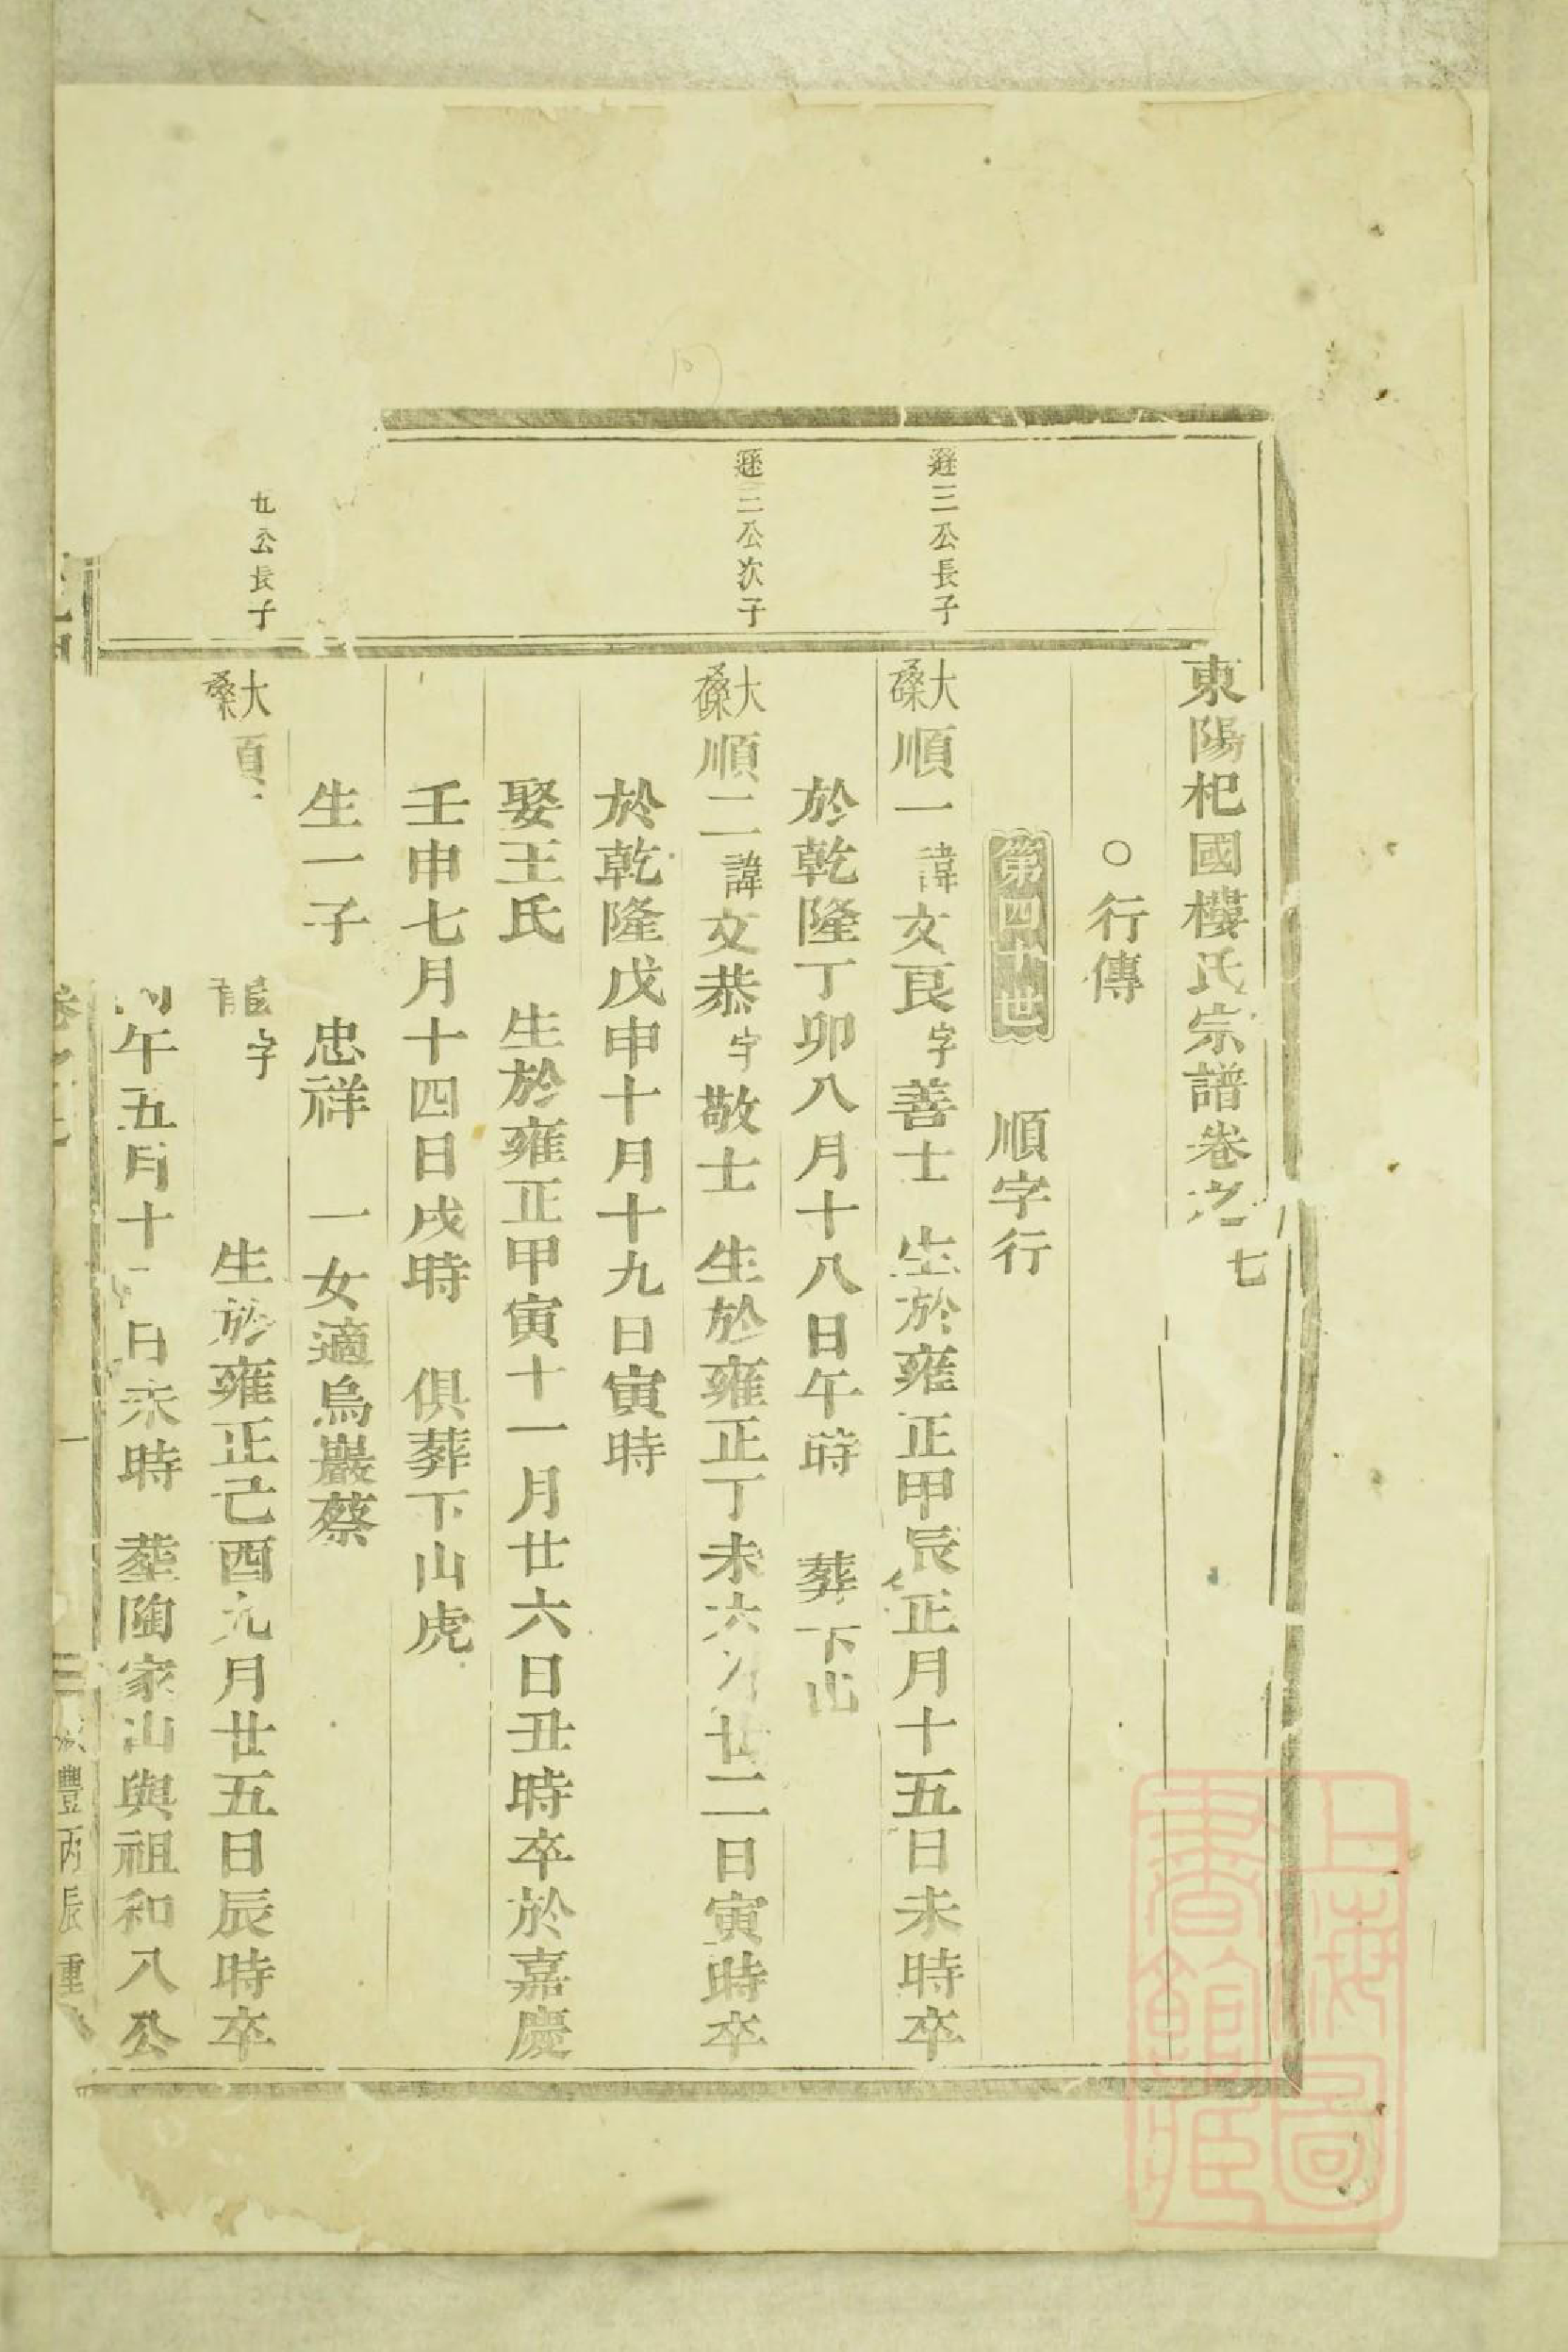 東陽杞國樓氏宗譜卷之七
○行傳
第四十世　順字行
遜三公長子
大磉順一諱文良字善士　生於雍正甲辰正月十五日未時卒
於乾隆丁卯八月十八日午時　葬下山
遜三公次子
大磉順二諱文恭字敬士　生於雍正丁未六月廿二日寅時卒
於乾隆戊申十月十九日寅時
娶王氏　生於雍正甲寅十一月廿六日丑時卒於嘉慶
壬申七月十四日戌時　俱葬下山虎
生一子　忠祥　一女適烏巖蔡
廿公長子
大磉順　龍字　生於雍正己酉九月廿五日辰時卒
午五月十日未時　葬陶家山與祖和八公
卷之七
一
咸豐丙辰重
上海圖書館藏